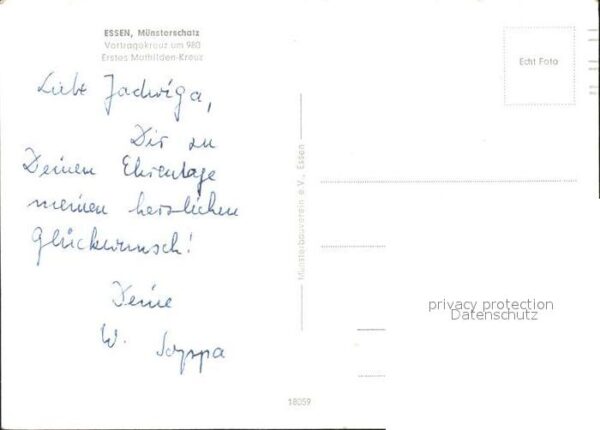 ESSEN, Münsterschatz
Vortragekreuz um 980
Erstes Mathilden-Kreuz
Echt Foto
Liebe Jadwiga,
Dir zu
Deinen Ehrentage
meinen herzlichen
Glückwunsch!
Deine
W.
Münsterbauverein e.V., Essen
privacy protection
Datenschutz
18059